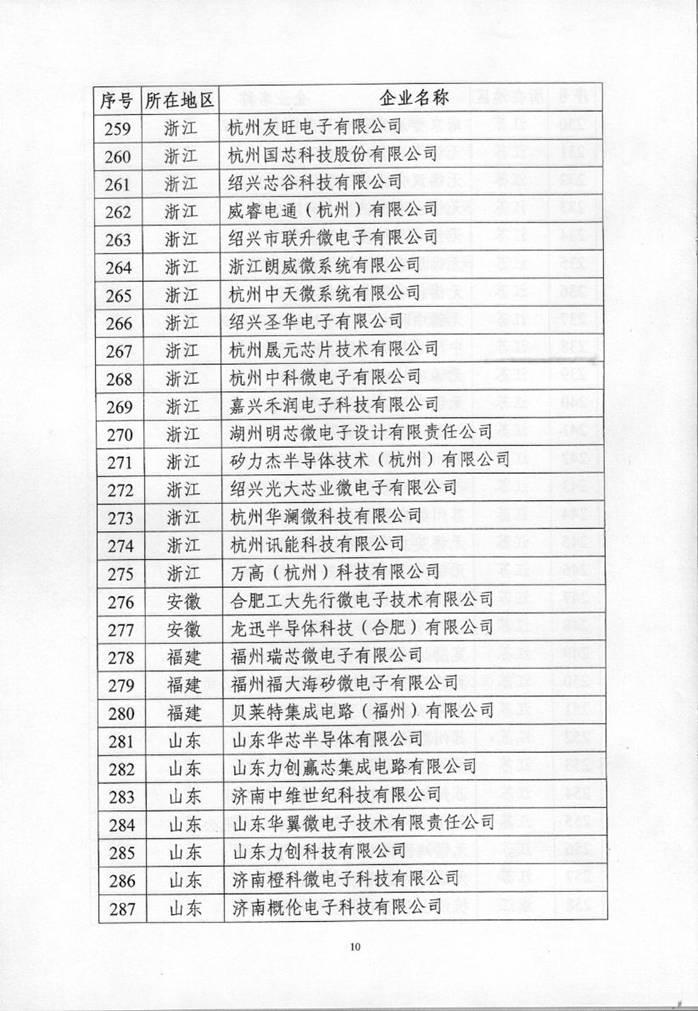 序号 所在地区 企业名称
259 浙江 杭州友旺电子有限公司
260 浙江 杭州国芯科技股份有限公司
261 浙江 绍兴芯谷科技有限公司
262 浙江 威睿电通（杭州）有限公司
263 浙江 绍兴市联升微电子有限公司
264 浙江 浙江朗威微系统有限公司
265 浙江 杭州中天微系统有限公司
266 浙江 绍兴圣华电子有限公司
267 浙江 杭州晟元芯片技术有限公司
268 浙江 杭州中科微电子有限公司
269 浙江 嘉兴禾润电子科技有限公司
270 浙江 湖州明芯微电子设计有限责任公司
271 浙江 矽力杰半导体技术（杭州）有限公司
272 浙江 绍兴光大芯业微电子有限公司
273 浙江 杭州华澜微科技有限公司
274 浙江 杭州讯能科技有限公司
275 浙江 万高（杭州）科技有限公司
276 安徽 合肥工大先行微电子技术有限公司
277 安徽 龙迅半导体科技（合肥）有限公司
278 福建 福州瑞芯微电子有限公司
279 福建 福州福大海矽微电子有限公司
280 福建 贝莱特集成电路（福州）有限公司
281 山东 山东华芯半导体有限公司
282 山东 山东力创赢芯集成电路有限公司
283 山东 济南中维世纪科技有限公司
284 山东 山东华翼微电子技术有限责任公司
285 山东 山东力创科技有限公司
286 山东 济南橙科微电子科技有限公司
287 山东 济南概伦电子科技有限公司
10